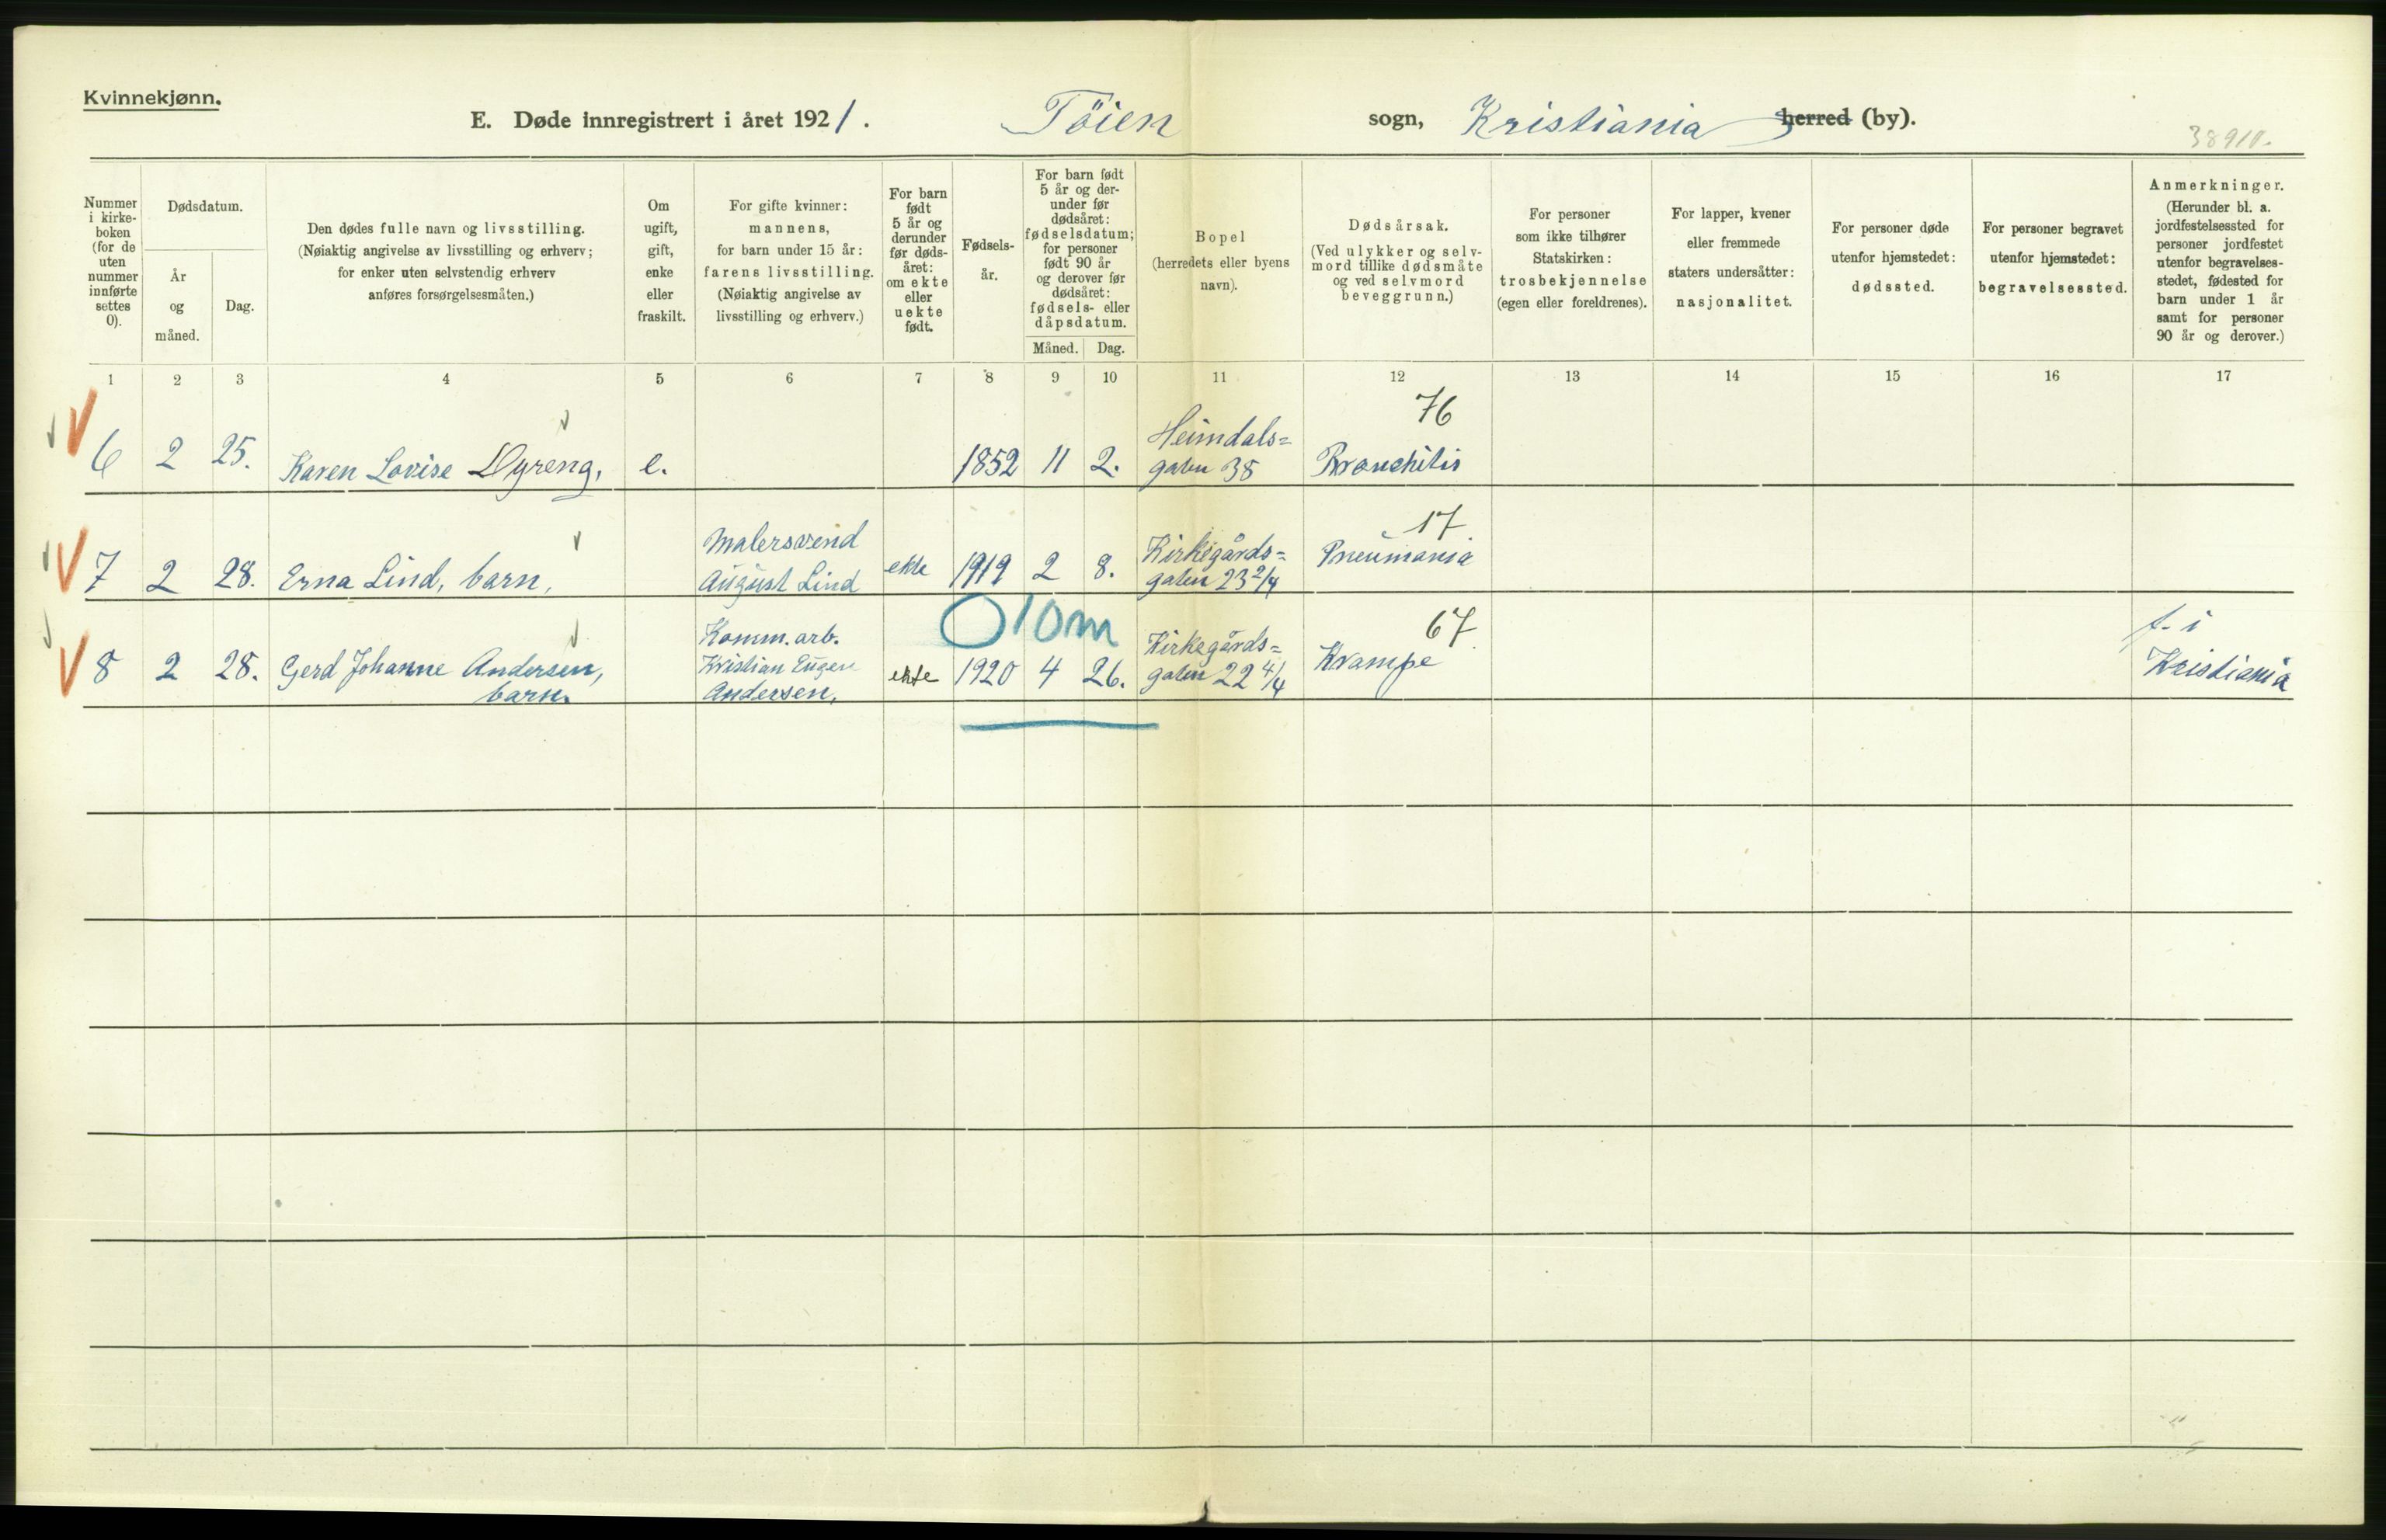 Kvinnekjønn.
E. Døde innregistrert i året 1921. Töien sogn, Kristiania herred (by).
38910.
Nummer
i kirke-
boken
(for de
uten
nummer
innførte
settes
0).
Dødsdatum.
År
og
måned.
Dag.
Den dødes fulle navn og livsstilling.
(Nøiaktig angivelse av livsstilling og erhverv;
for enker uten selvstendig erhverv
anføres forsørgelsesmåten.)
Om
ugift,
gift,
enke
eller
fraskilt.
For gifte kvinner:
mannens,
for barn under 15 år:
farens livsstilling.
(Nøiaktig angivelse av
livsstilling og erhverv.)
For barn
født
5 år og
derunder
før døds-
året:
om ekte
eller
uekte
født.
Fødsels-
år.
For barn født
5 år og der-
under før
dødsåret:
fødselsdatum;
for personer
født 90 år
og derover før
dødsåret:
fødsels- eller
dåpsdatum.
Måned. Dag.
Bopel
(herredets eller byens
navn).
Dødsårsak.
(Ved ulykker og selv-
mord tillike dødsmåte
og ved selvmord
beveggrunn.)
For personer
som ikke tilhører
Statskirken:
trosbekjennelse
(egen eller foreldrenes).
For lapper, kvener
eller fremmede
staters undersåtter:
nasjonalitet.
For personer døde
utenfor hjemstedet:
dødssted.
For personer begravet
utenfor hjemstedet:
begravelsessted.
Anmerkninger.
(Herunder bl. a.
jordfestelsessted for
personer jordfestet
utenfor begravelses-
stedet, fødested for
barn under 1 år
samt for personer
90 år og derover.)
1 2 3 4 5 6 7 8 9 10 11 12 13 14 15 16 17
76
Heimdals=
6 2 25. Karen Lovise Dyreng, e. 1852 11 2. gaten 38 Bronchitis
17
Malersvend Kirkegårds= Pneumonia
7 2 28. Erna Lind, barn, August Lind ekte 1919 2 8. gaten 23 2/4
0 10 m
67
Komm. arb. Kirkegårds= f. i
8 2 28. Gerd Johanne Andersen, Kristian Eugen ekte 1920 4 26. gaten 22 4/4 Krampe Kristiania
barn. Andersen.